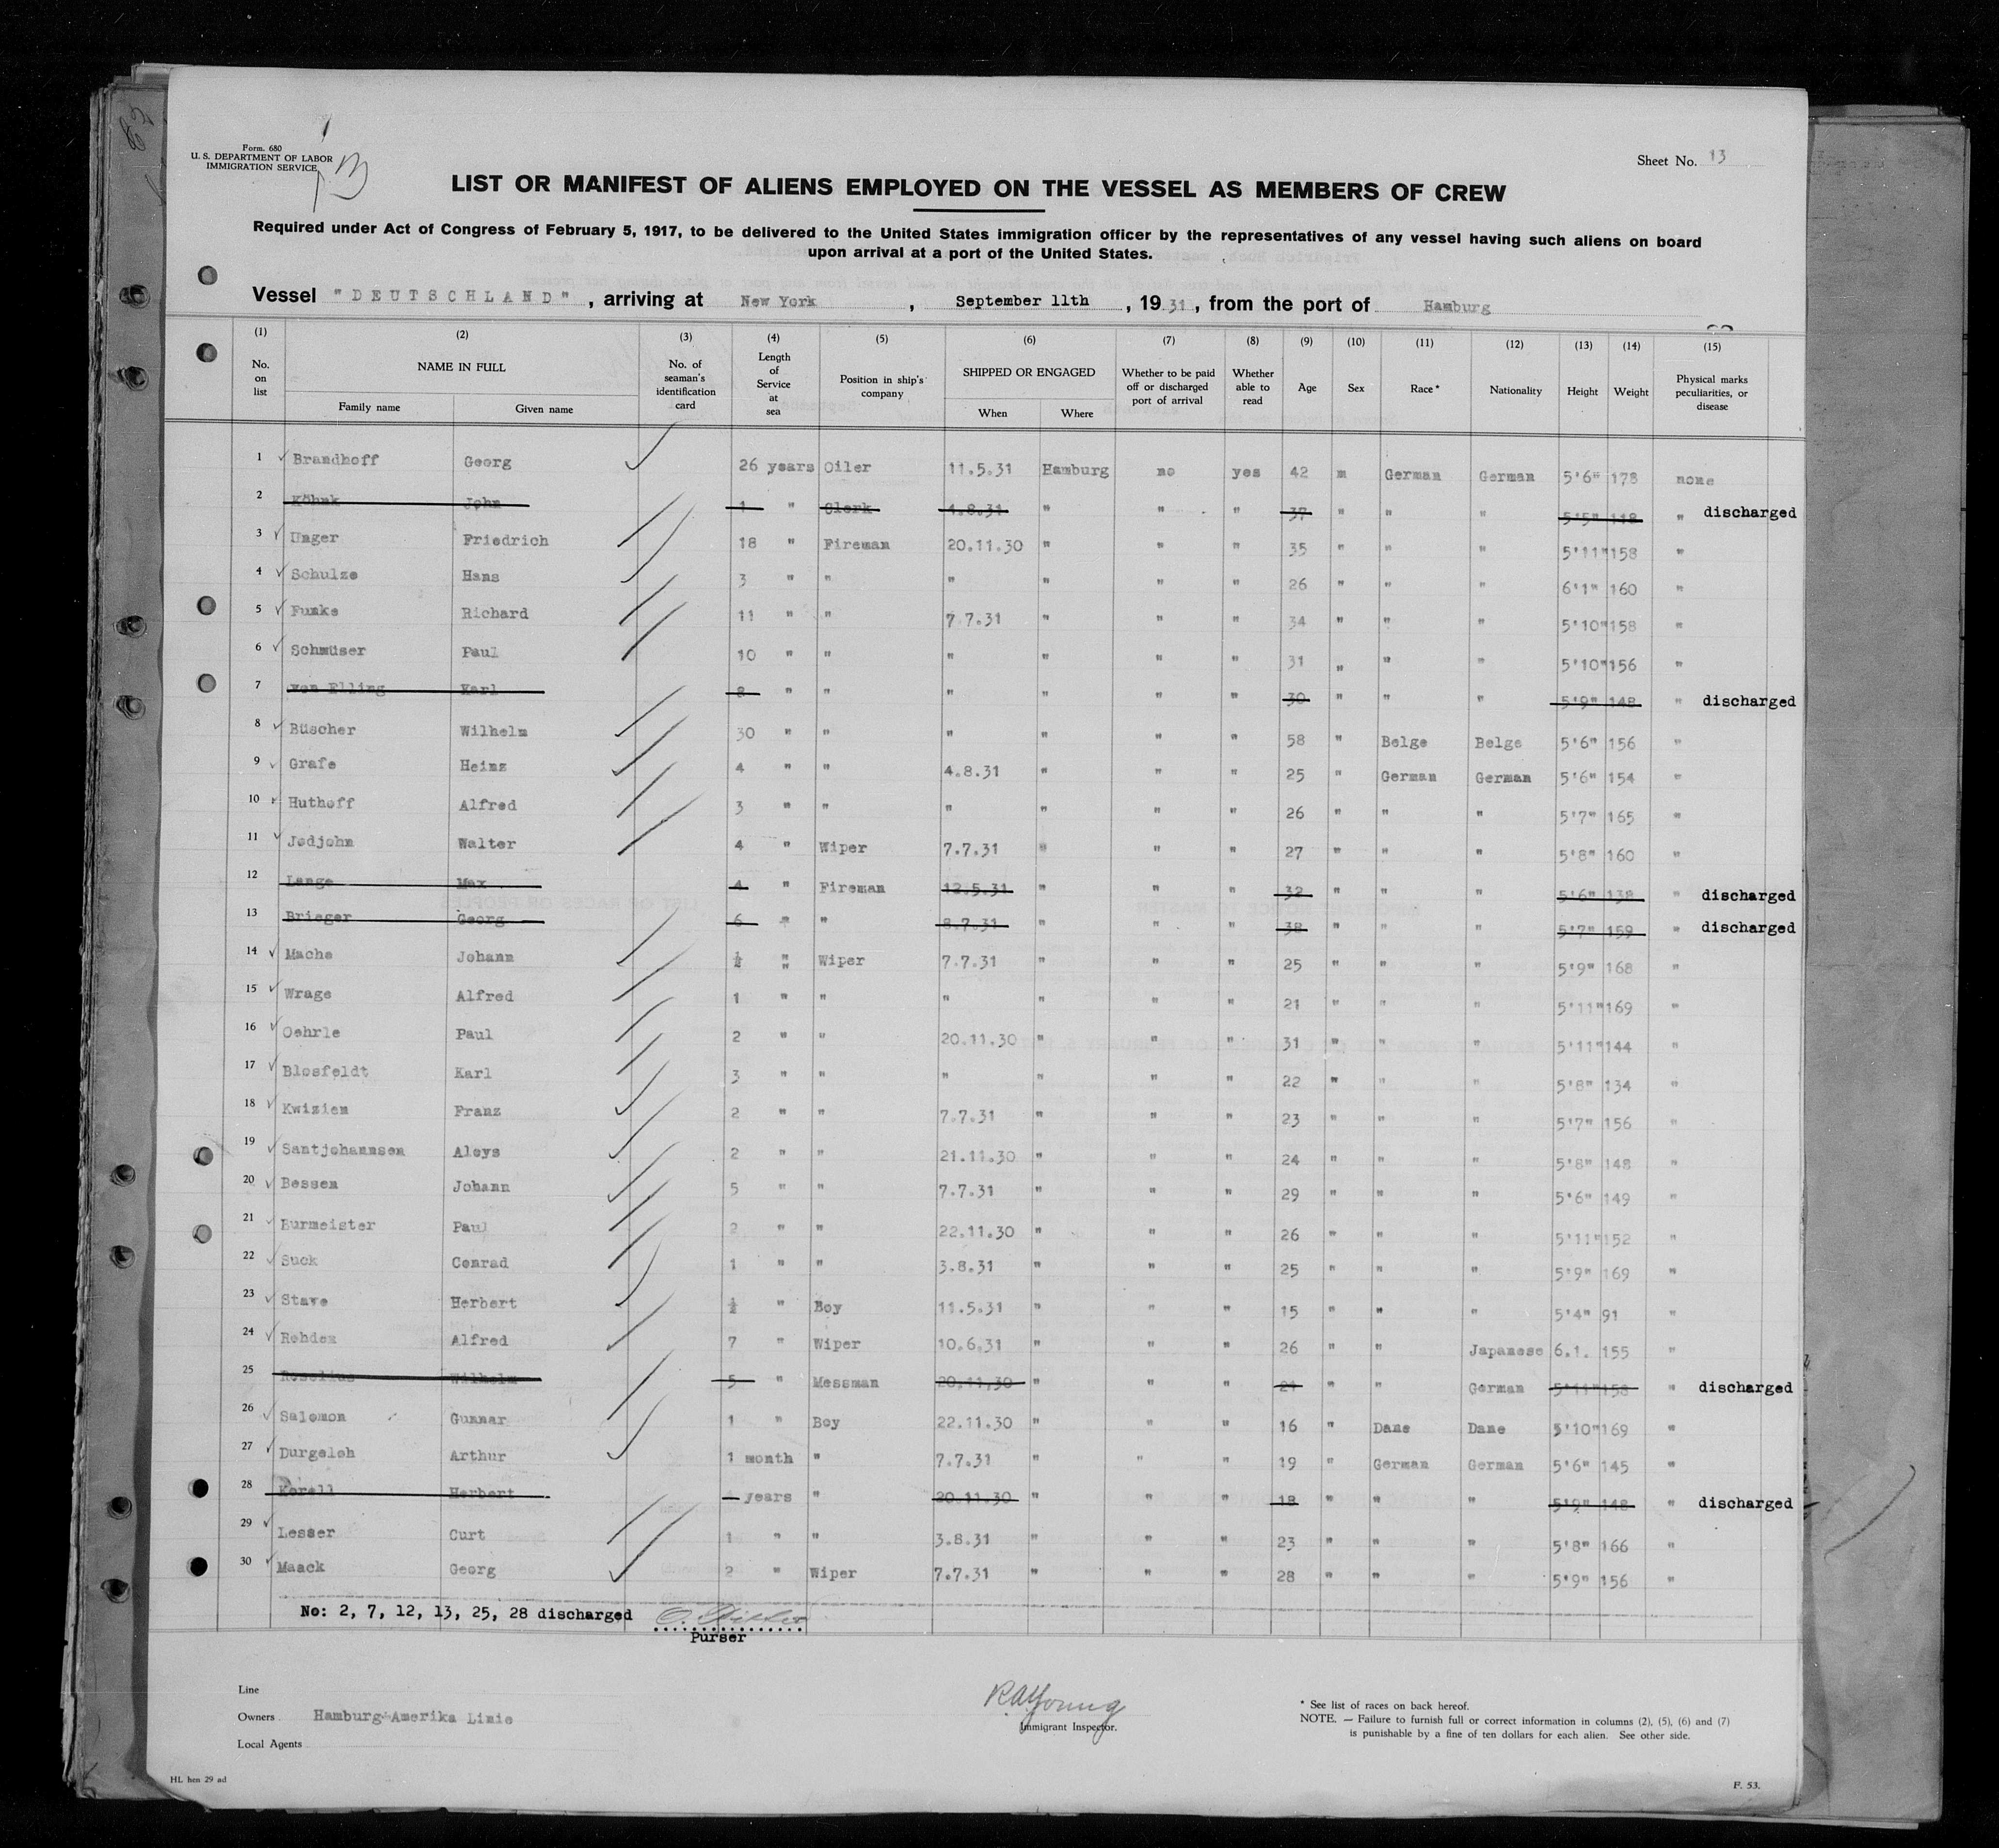 Form. 680
U. S. DEPARTMENT OF LABOR
IMMIGRATION SERVICE
13
Sheet No. 13
LIST OR MANIFEST OF ALIENS EMPLOYED ON THE VESSEL AS MEMBERS OF CREW
Required under Act of Congress of February 5, 1917, to be delivered to the United States immigration officer by the representatives of any vessel having such aliens on board
upon arrival at a port of the United States.
Vessel "DEUTSCHLAND", arriving at New York, September 11th, 1931, from the port of Hamburg
(1) (2) (3) (4) (5) (6) (7) (8) (9) (10) (11) (12) (13) (14) (15)
No. on list
NAME IN FULL
Family name Given name
No. of seaman's identification card
Length of Service at sea
Position in ship's company
SHIPPED OR ENGAGED
When Where
Whether to be paid off or discharged port of arrival
Whether able to read
Age
Sex
Race *
Nationality
Height
Weight
Physical marks peculiarities, or disease
1 Brandhoff Georg 26 years Oiler 11.5.31 Hamburg no yes 42 m German German 5'6" 178 none
2 Köhnk John 1 " Clerk 4.8.31 " " " 37 " " " 5'5" 118 " discharged
3 Unger Friedrich 18 " Fireman 20.11.30 " " " 35 " " " 5'11" 158 "
4 Schulze Hans 3 " " " " " " 26 " " " 6'1" 160 "
5 Funke Richard 11 " " 7 7.31 " " " 34 " " " 5'10" 158 "
6 Schmüser Paul 10 " " " " " " 31 " " " 5'10" 156 "
7 von Elling Karl 8 " " " " " " 30 " " " 5'9" 148 " discharged
8 Büscher Wilhelm 30 " " " " " " 58 " Belge Belge 5'6" 156 "
9 Grafe Heinz 4 " " 4.8.31 " " " 25 " German German 5'6" 154 "
10 Huthoff Alfred 3 " " " " " " 26 " " " 5'7" 165 "
11 Jedjohn Walter 4 " Wiper 7.7.31 " " " 27 " " " 5'8" 160 "
12 Lange Max 4 " Fireman 12.5.31 " " " 32 " " " 5'6" 138 " discharged
13 Brieger Georg 6 " " 8.7.31 " " " 38 " " " 5'7" 159 " discharged
14 Macha Johann ½ " Wiper 7.7.31 " " " 25 " " " 5'9" 168 "
15 Wrage Alfred 1 " " " " " " 21 " " " 5'11" 169 "
16 Oehrle Paul 2 " " 20.11.30 " " " 31 " " " 5'11" 144 "
17 Blosfeldt Karl 3 " " " " " " 22 " " " 5'8" 134 "
18 Kwizien Franz 2 " " 7.7.31 " " " 23 " " " 5'7" 156 "
19 Santjohannsen Aloys 2 " " 21.11.30 " " " 24 " " " 5'8" 148 "
20 Bessen Johann 5 " " 7.7.31 " " " 29 " " " 5'6" 149 "
21 Burmeister Paul 2 " " 22.11.30 " " " 26 " " " 5'11" 152 "
22 Suck Conrad 1 " " 3.8.31 " " " 25 " " " 5'9" 169 "
23 Stave Herbert ½ " Boy 11.5.31 " " " 15 " " " 5'4" 91 "
24 Rehder Alfred 7 " Wiper 10.6.31 " " " 26 " " Japanese 6.1. 155 "
25 Roselius Wilhelm 5 " Messman 20.11.30 " " " 21 " " German 5'11" 158 " discharged
26 Salomon Gunnar 1 " Boy 22.11.30 " " " 16 " Dane Dane 5'10" 169 "
27 Durgeloh Arthur 1 month " 7.7.31 " " " 19 " German German 5'6" 145 "
28 Korell Herbert years " 20.11.30 " " " 18 " " " 5'9" 148 " discharged
29 Lesser Curt 1 " " 3.8.31 " " " 23 " " " 5'8" 166 "
30 Maack Georg 2 " Wiper 7.7.31 " " " 28 " " " 5'9" 156 "
No: 2, 7, 12, 13, 25, 28 discharged
Purser
Line
Owners Hamburg-Amerika Linie
Local Agents
R A Young
Immigrant Inspector.
* See list of races on back hereof.
NOTE. — Failure to furnish full or correct information in columns (2), (5), (6) and (7)
is punishable by a fine of ten dollars for each alien. See other side.
HL hen 29 ad
F. 53.